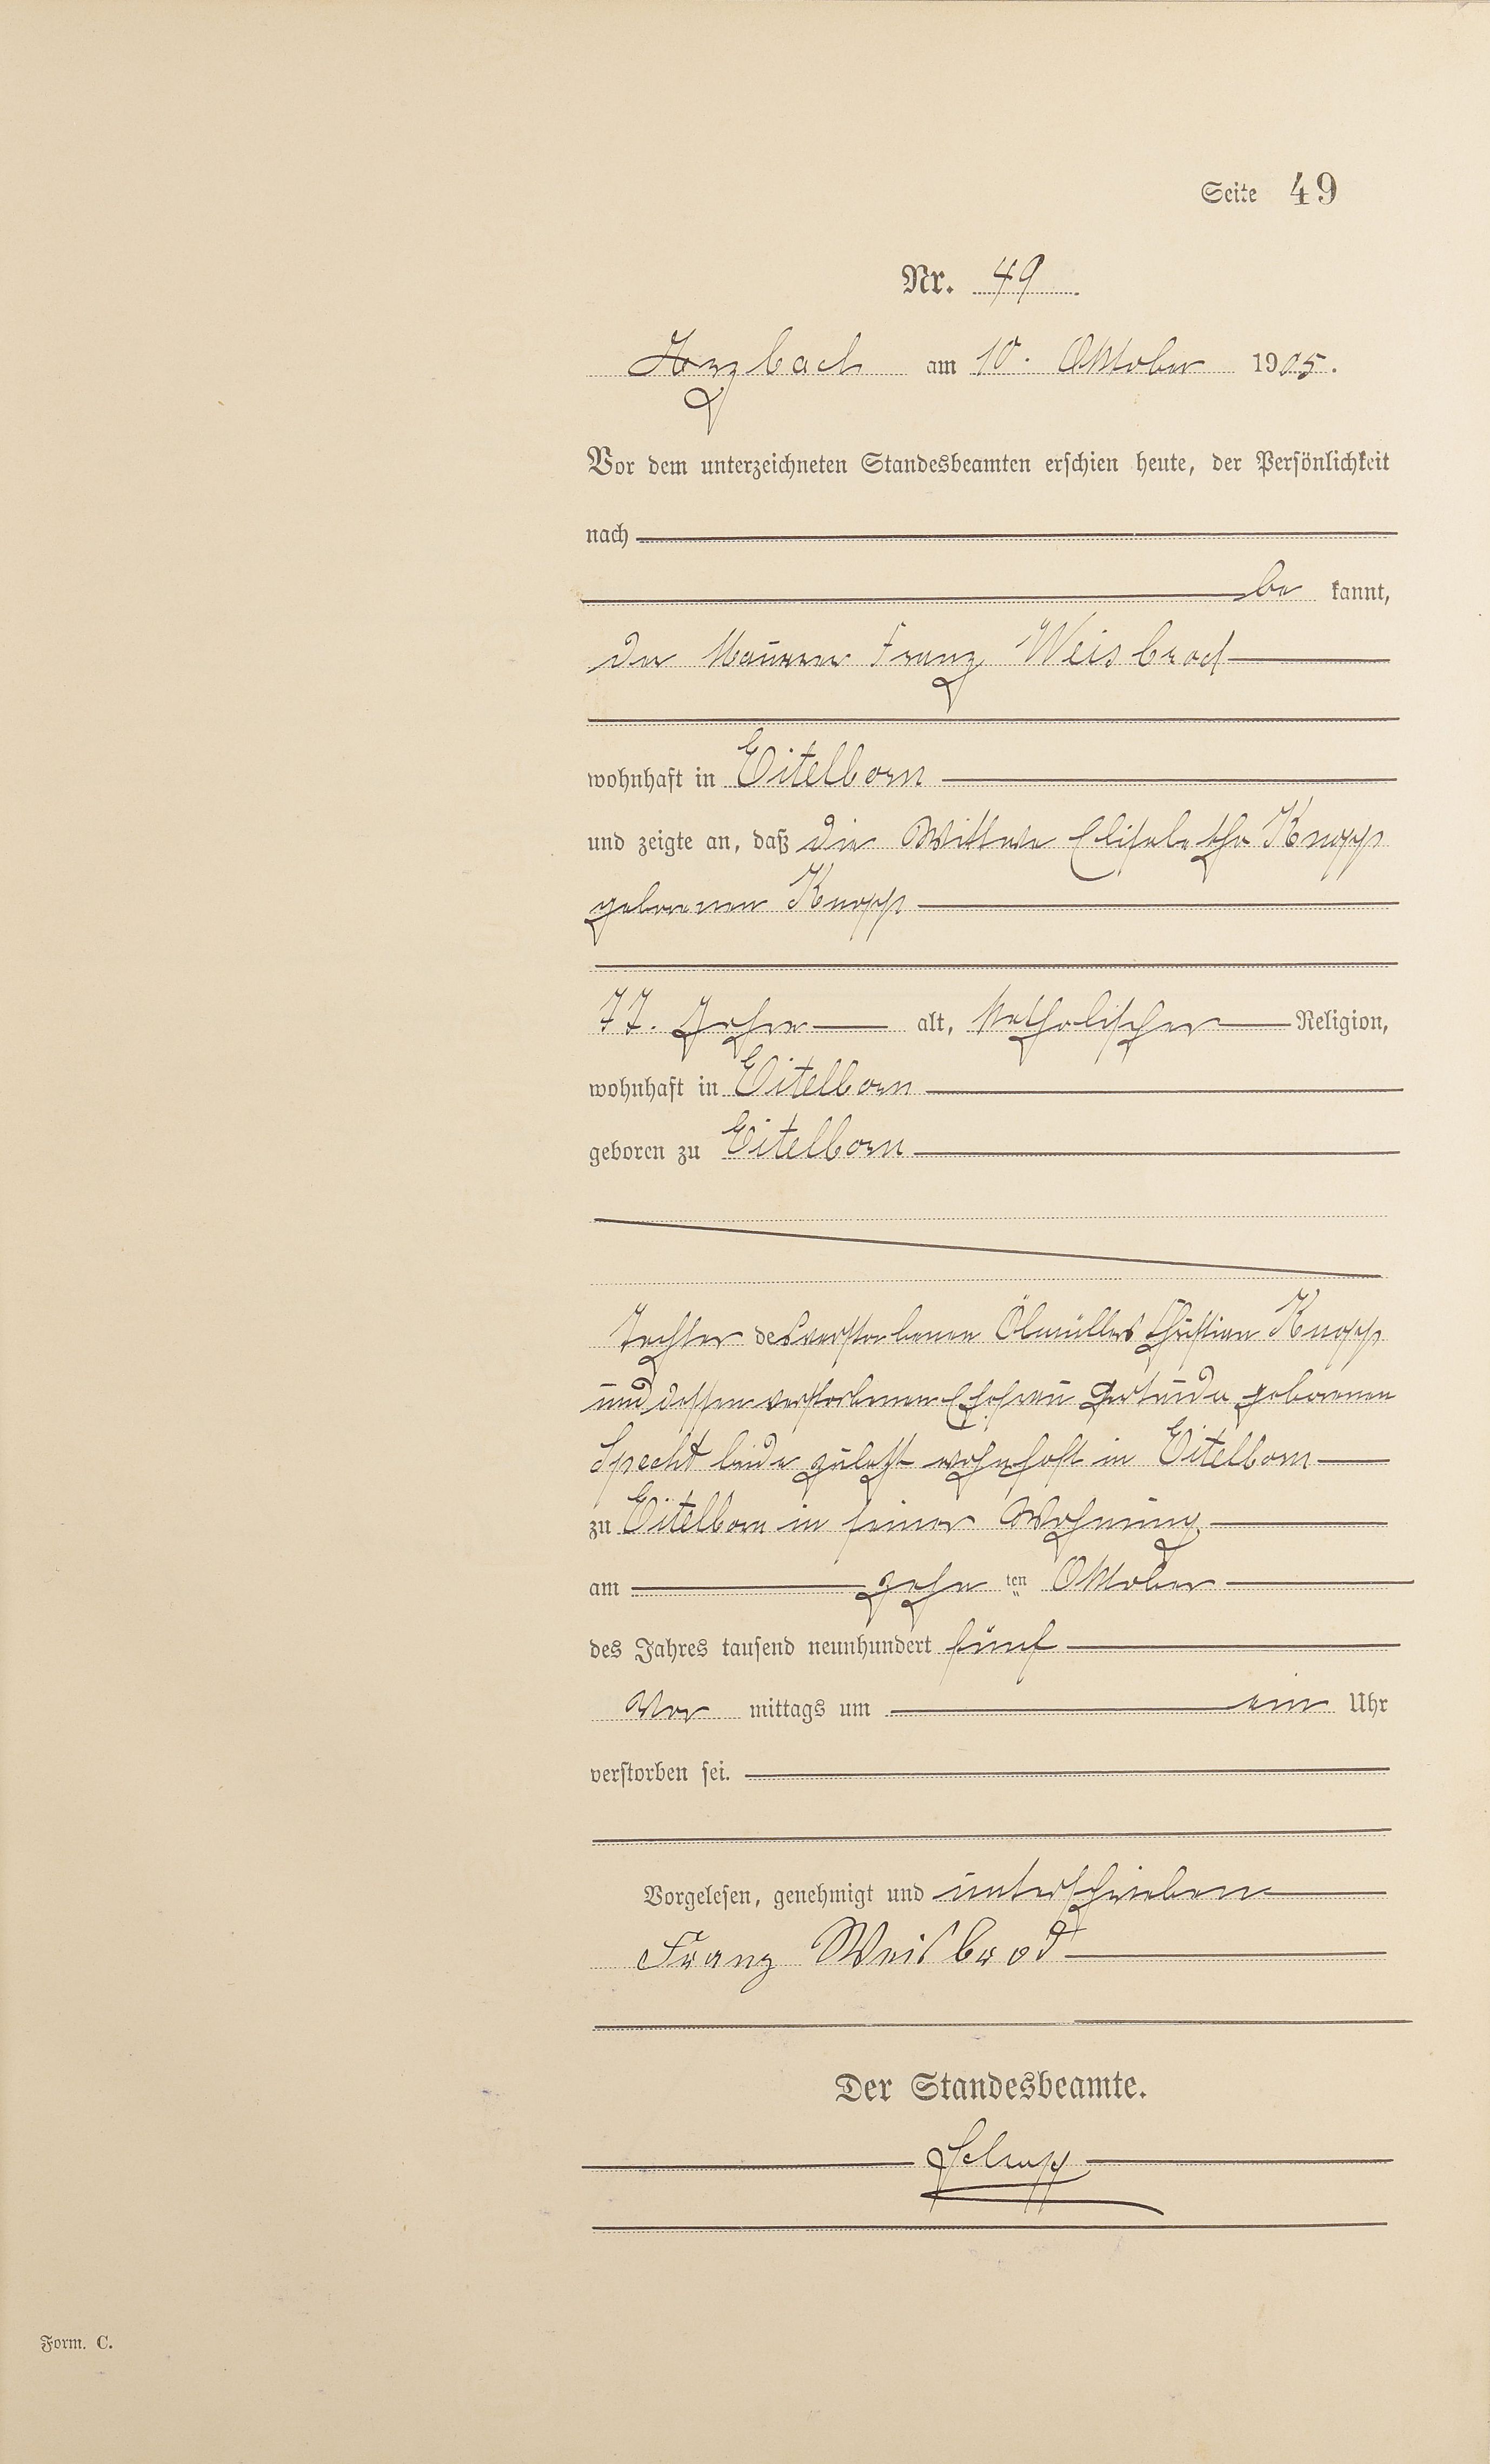 Seite 49
Nr. 49
Horzbach am 10. Oktober 1905.
Vor dem unterzeichneten Standesbeamten erschien heute, der Persönlichkeit
nach
be kannt,
der Maurer Franz Weisbrod
wohnhaft in Eitelborn
und zeigte an, daß die Wittwe Elisabetha Knopp
geborenen Knopp
77. Jahre alt, katholischer Religion,
wohnhaft in Eitelborn
geboren zu Eitelborn
Tochter des verstorbenen Ölmüllers Christian Knopp
und dessen verstorbenen Ehefrau Gertruda geborenen
Specht beide zuletzt wohnhaft in Eitelborn
zu Eitelborn in seiner Wohnung
am zehn ten Oktober
des Jahres tausend neunhundert fünf
Vor mittags um ein Uhr
verstorben sei.
Vorgelesen, genehmigt und unterschrieben
Franz Weisbrod
Der Standesbeamte.
Form. C.